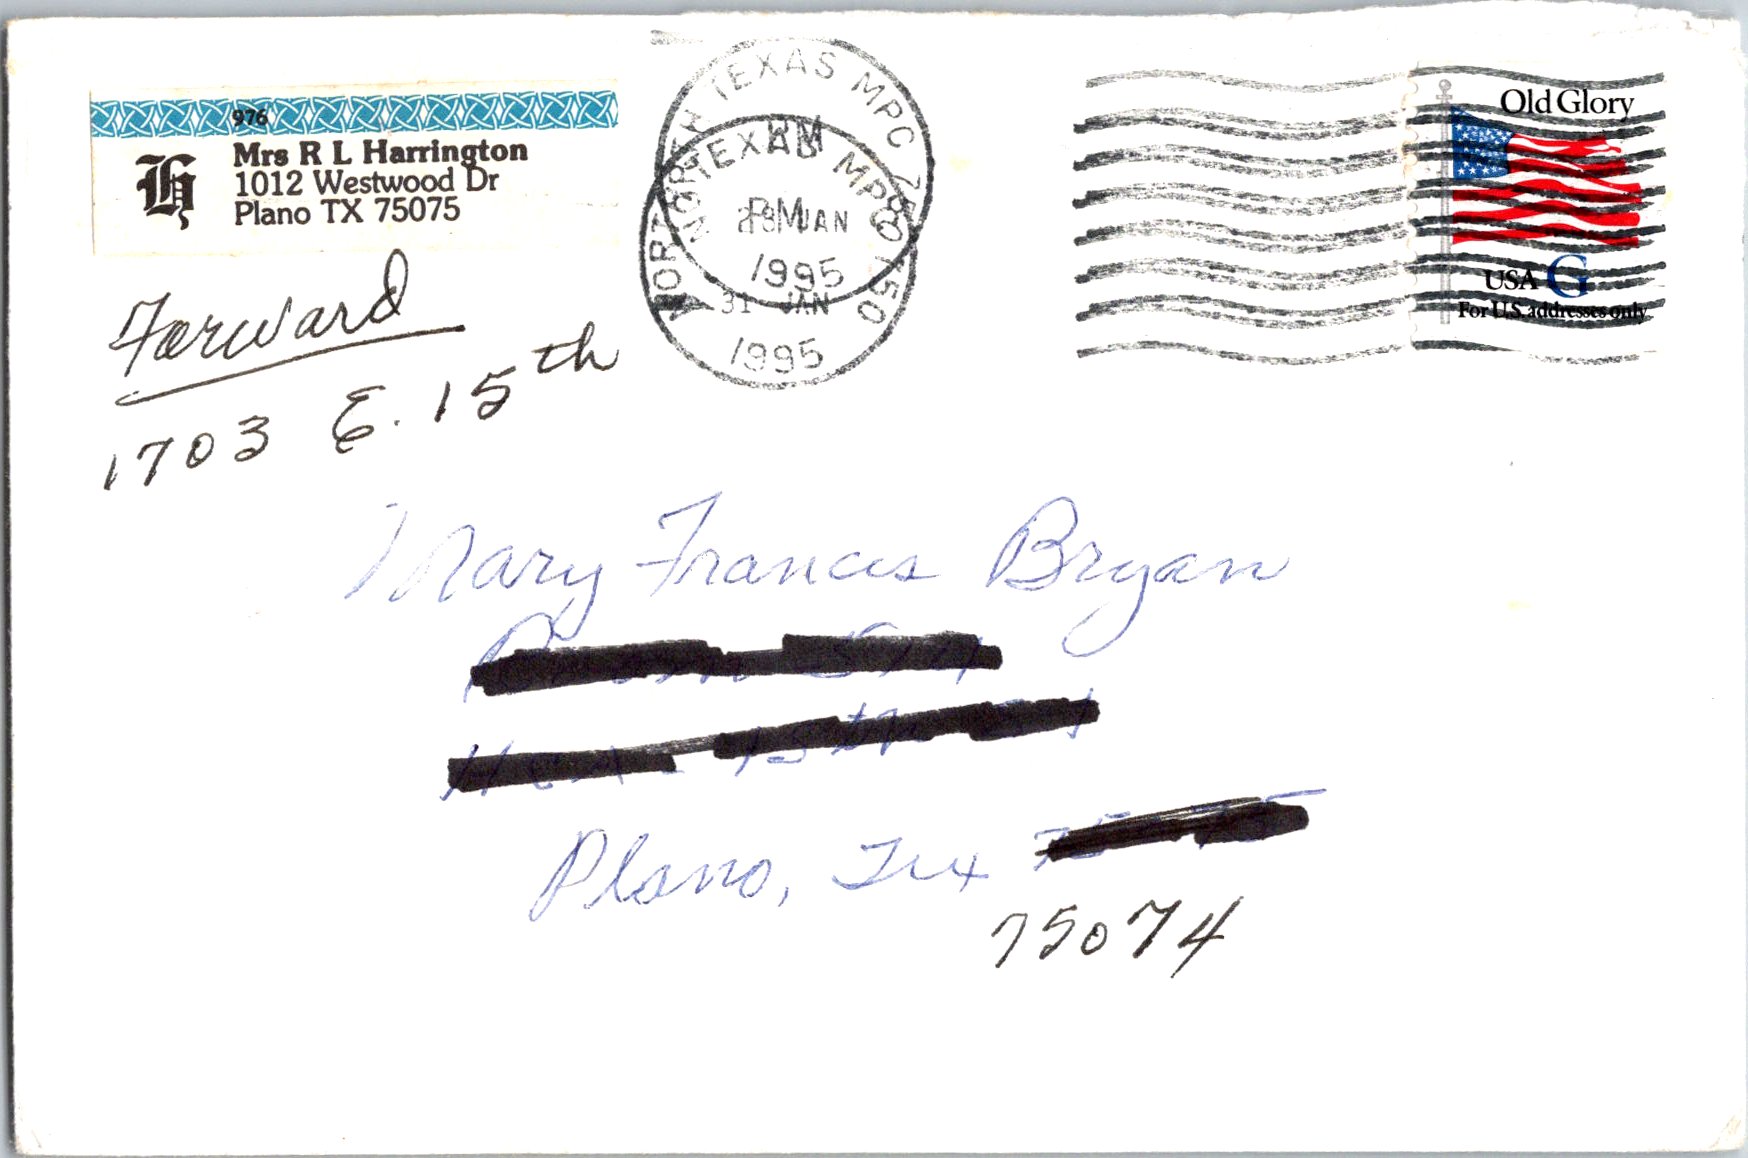 976
Mrs R L Harrington
1012 Westwood Dr
Plano TX 75075
Forward
1703 E. 15th
NORTH TEXAS MPC 750
PM
31 JAN
1995
NORTH TEXAS MPC 750
JAN
1995
Old Glory
USA G
For U.S. addresses only
Mary Francis Bryan
15th
Plano, Tex
75074